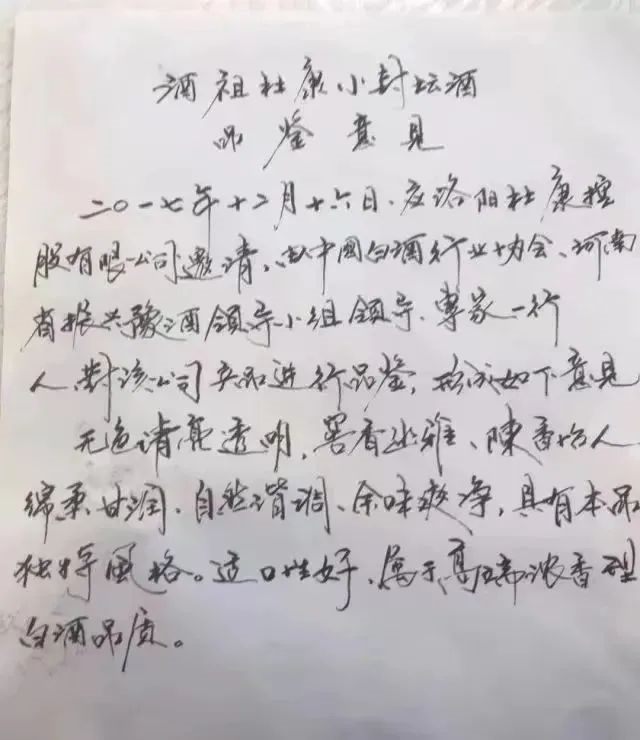 酒祖杜康小封坛酒
品鉴意见
二〇一七年十二月十六日、应洛阳杜康控
股有限公司邀请，由中国白酒行业协会、河南
省振兴豫酒领导小组领导、專家一行
人、對该公司产品进行品鉴，形成如下意见
无色清亮透明，窖香幽雅、陳香怡人
绵柔甘润、自然谐调、余味爽净，具有本品
独特風格。适口性好、属于高端浓香型
白酒品质。